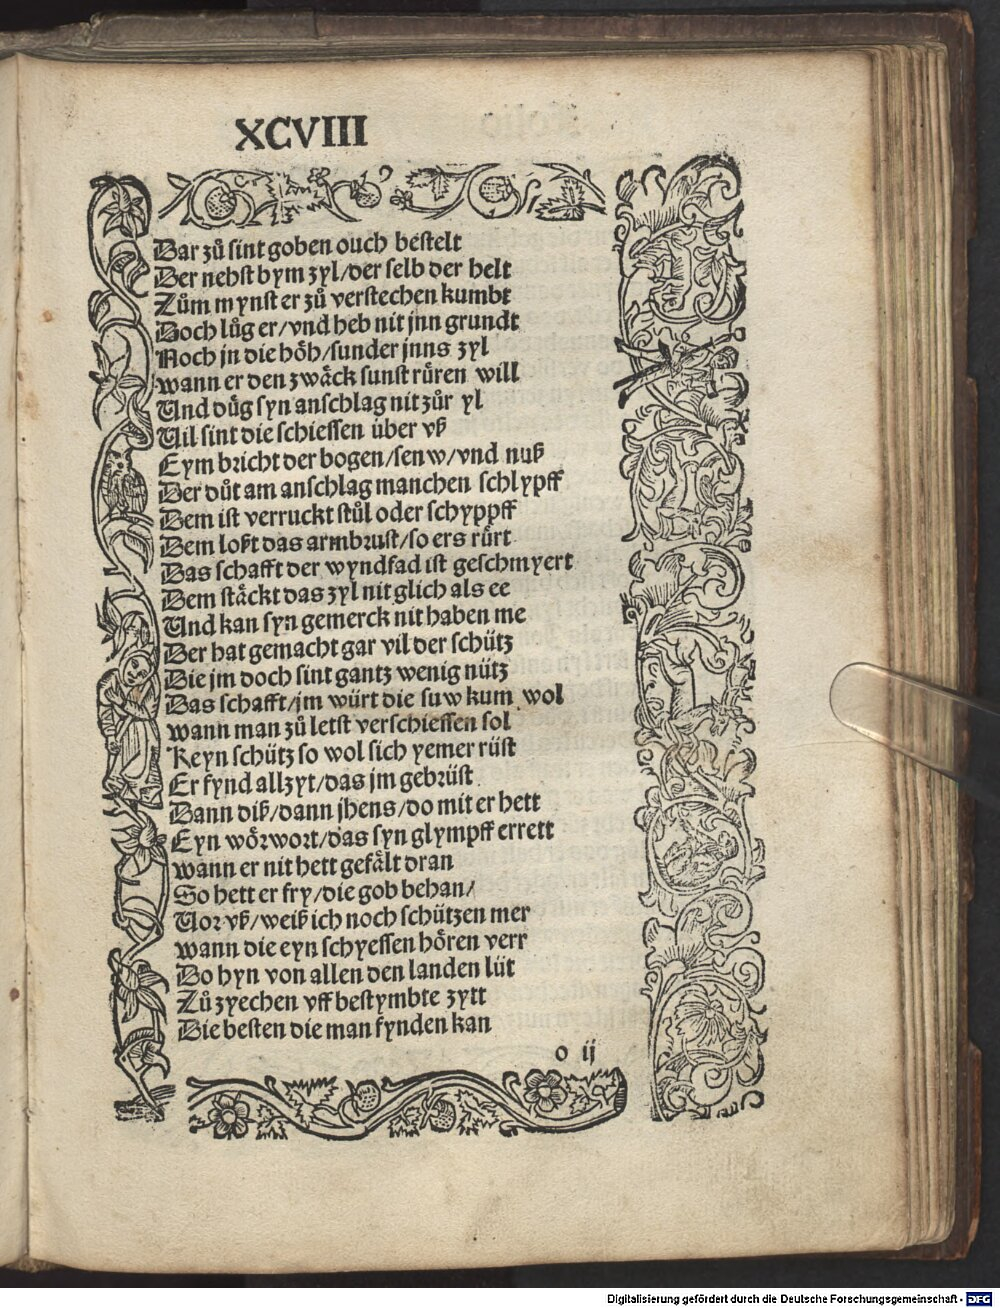 XCVIII
Dar zuͦ sint goben ouch bestelt
Der nehst bym zyl/der selb der helt
Zuͦm mynst er zuͦ verstechen kumbt
Doch luͦg er/vnd heb nit jnn grundt
Noch jn die hoͤh/sunder jnns zyl
wann er den zwaͤck sunst ruͤren will
Und duͤg syn anschlag nit zuͦr yl
Uil sint die schiessen uͤber vß
Eym bricht der bogen/senw/vnd nuß
Der duͦt am anschlag manchen schlypff
Dem ist verruckt stuͦl oder schyppff
Dem loßt das armbrust/so ers ruͤrt
Das schafft der wyndfad ist geschmyert
Dem staͤckt das zyl nit glich als ee
Und kan syn gemerck nit haben me
Der hat gemacht gar vil der schuͤtz
Die jm doch sint gantz wenig nuͤtz
Das schafft/jm wuͤrt die suw kum wol
wann man zuͦ letst verschiessen sol
Keyn schuͤtz so wol sich yemer ruͤst
Er fynd allzyt/das jm gebruͤst
Dann diß/dann jhens/do mit er hett
Eyn woͤrwort/das syn glympff errett
wann er nit hett gefaͤlt dran
So hett er fry/die gob behan/
Uor vß/weiß ich noch schuͤtzen mer
wann die eyn schyessen hoͤren verr
Do hyn von allen den landen luͤt
Zuͦ zyechen vff bestymbte zytt
Die besten die man fynden kan
o ij
Digitalisierung gefördert durch die Deutsche Forschungsgemeinschaft - DFG